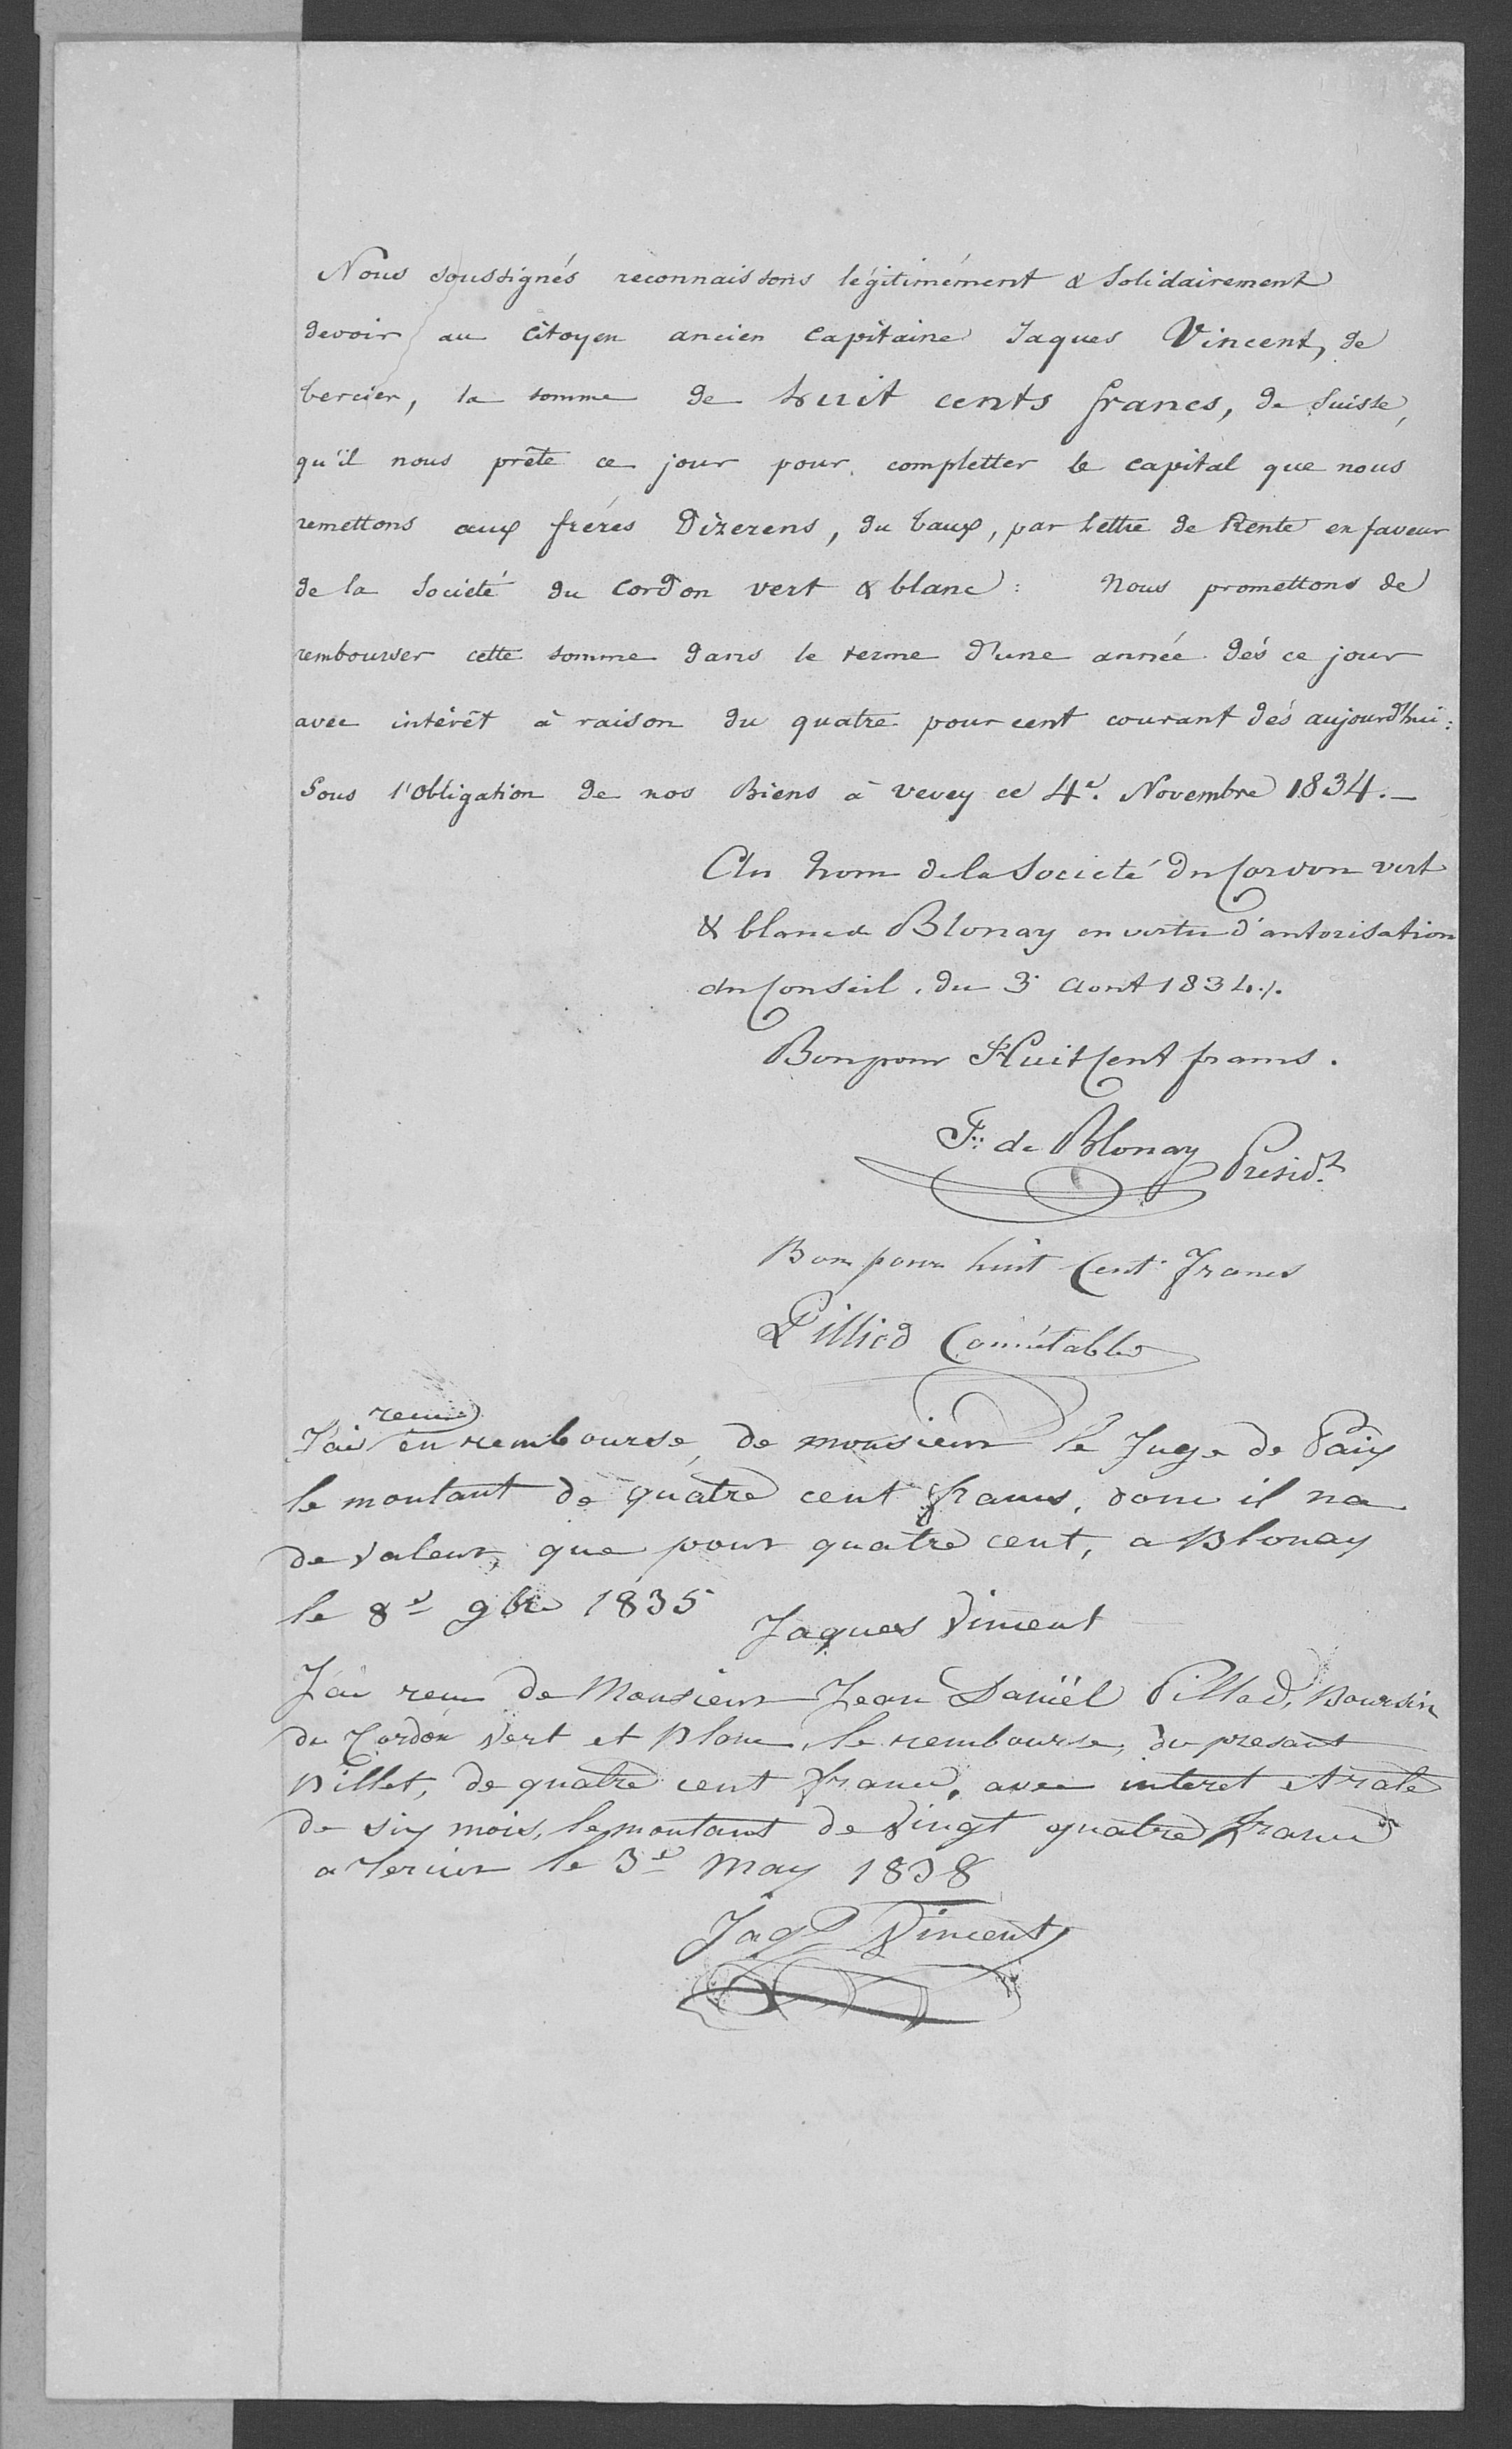 Nous soussignés reconnaissons légitimément & Solidairement
devoir au Citoyen ancien Capitaine Jaques Vincent, de
bercier, la somme de huit cents francs, de Suisse,
qu'il nous prête ce jour pour completter le capital que nous
remettons aux fréres Dizerens, du baux, par lettre de Rente en faveur
de la Societé du Cordon vert & blanc : Nous promettons de
rembourser cette somme dans le terme d'une année dés ce jour
avec intérêt à raison du quatre pour cent courant dés aujourd'hui :
Sous l'Obligation de nos Biens à Vevey ce 4e. Novembre 1834.—
Au Nom de la Societé du Cordon vert
& blanc de Blonay en vertu d'autorisation
du Conseil. du 3 Aout 1834./.
Bon pour Huit Cent francs.
F: de Blonay Présidt
Bon pour huit Cent Francs
Pilliod Connétable
reçu
J'ai en rembourse, de monsieur le Juge de Paix
le montant de quatre cent francs, donc il na
de valeur, que pour quatre cent, a Blonay
le 8e 9bre 1835 Jaques Vincent
J'ai reçu de Monsieur Jean Daniël Pilliod, Boursier
du Cordon Vert et Blanc, le rembourse, du presant
Billet, de quatre cent franc, avec interet et rate
de six mois, le montant de Vingt quatre franc
a Tercier le 3e May 1838
Jaqs Vincent